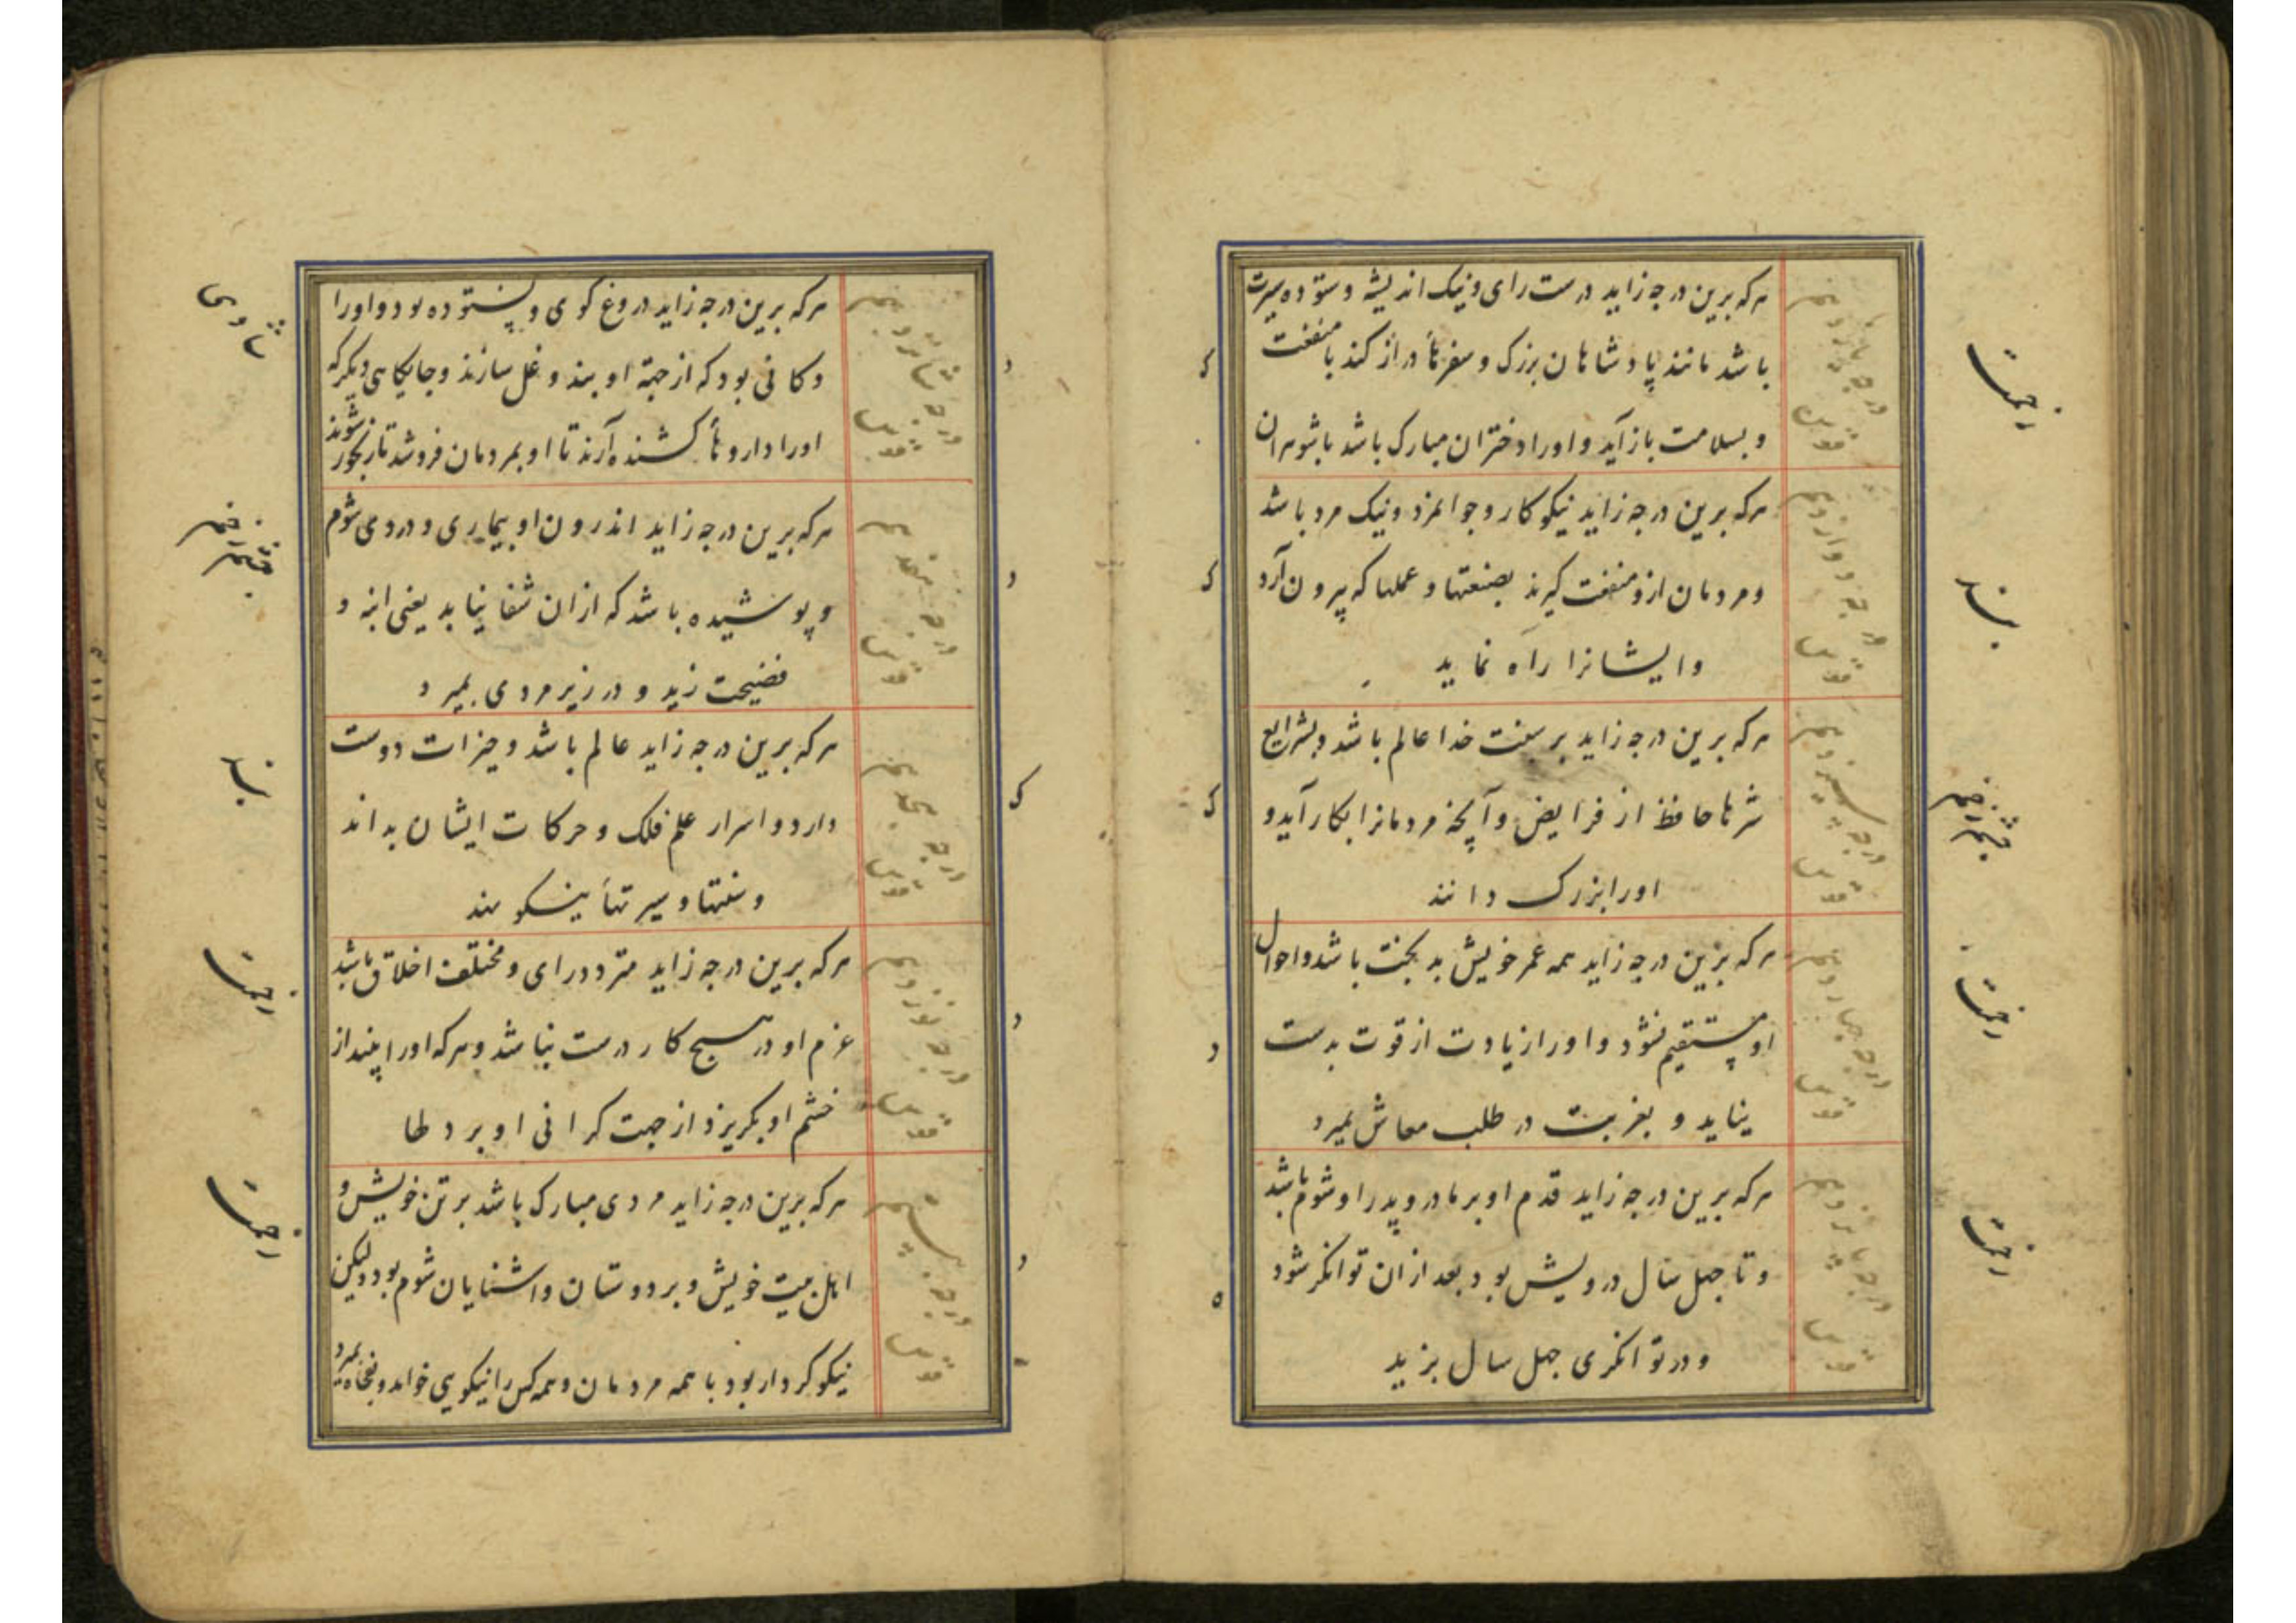 هرکه برین درجه زاید درست رای و نیک اندیشه و ستوده سیرت
باشد مانند پادشاهان بزرک و سفرها دراز کند با منفعت
و بسلامت باز آید و اورا دختران مبارک باشد با شوهران
درجه یازدهم
قوس
هرکه برین درجه زاید نیکو کار و جوانمرد و نیک مرد باشد
و مردمان ازو منفعت کیرند بصنعتها و عملها که بیرون آرد
و ایشانرا راه نماید
درجه دوازدهم
قوس
هرکه برین درجه زاید بر سنت خدا عالم باشد و بشرایع
شرها حافظ از فرایض و آنچه مردمانرا بکار آید و
اورا بزرک دانند
درجه سیزدهم
قوس
هرکه برین درجه زاید همه عمر خویش بدبخت باشد و احوال
او مستقیم نشود و اورا زیادت از قوت بدست
نیاید و بغربت در طلب معاش بمیرد
درجه چهاردهم
قوس
هرکه برین درجه زاید قدم او بر مادر و پدر او شوم باشد
و تا چهل سال درویش بود بعد ازان توانکر شود
و در توانکری چهل سال بزید
درجه پانزدهم
قوس
هرکه برین درجه زاید دروغ کوی و ستوده بود و اورا
دکانی بود که از جهة او بند و غل سازند و جایکاهی دیکر که
اورا داروها کشنده آرند تا او بمردمان فروشد تا رنجور شوند
درجه شانزدهم
قوس
هرکه برین درجه زاید اندرون او بیماری و دردی شوم
و پوشیده باشد که ازان شفا نیابد یعنی ابنه و
فضیحت زید و در زیر مردی بمیرد
درجه هفدهم
قوس
هرکه برین درجه زاید عالم باشد و خیرات دوست
دارد و اسرار علم فلک و حرکات ایشان بداند
و سنتها و سیرتها نیکو نهد
درجه هجدهم
قوس
هرکه برین درجه زاید متردد رای و مختلف اخلاق باشد
عزم او در هیچ کار درست نباشد و هرکه اورا بیند از
خشم او بکریزد از جهت کرانی او بر دلها
درجه نوزدهم
قوس
هرکه برین درجه زاید مردی مبارک باشد بر تن خویش و
اهل بیت خویش و بر دوستان و اشنایان شوم بود ولیکن
نیکو کردار بود با همه مردمان و همه کس را نیکویی خواهد بمیرد
درجه بیستم
قوس